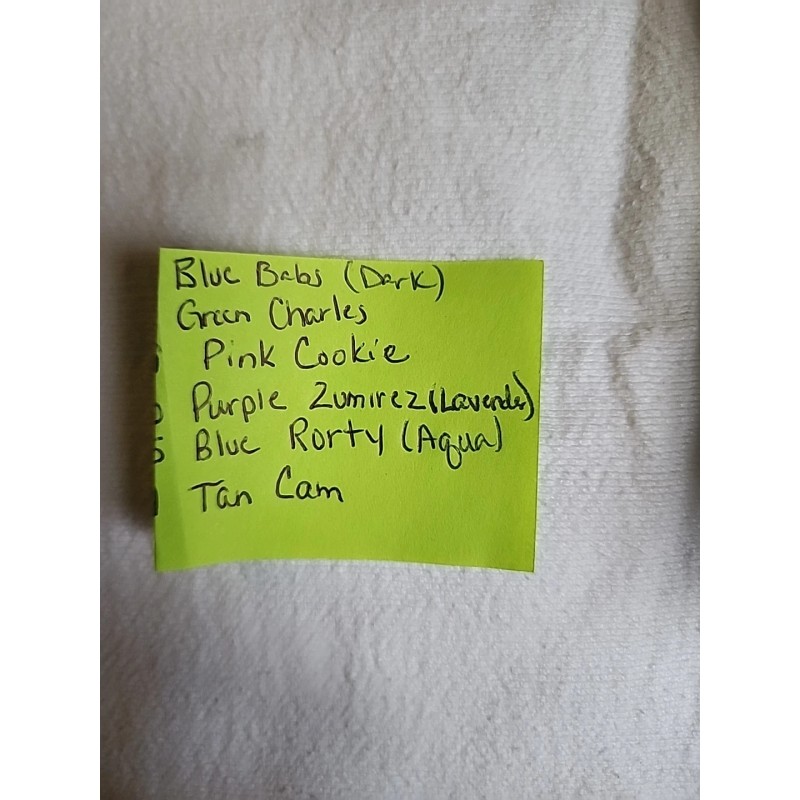 Blue Babs (Dark)
Green Charles
Pink Cookie
Purple Zumirez (Lavender)
Blue Rorty (Aqua)
5
Tan Cam